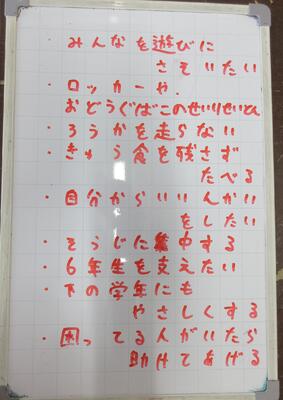 ・みんなを遊びに
さそいたい
・ロッカーや、
おどうぐばこのせいりせいとん
・ろうかを走らない
・きゅう食を残さず
たべる
・自分からいいんかい
をしたい
・そうじに集中する
・6年生を支えたい
・下の学年にも
やさしくする
・困ってる人がいたら
助けてあげる